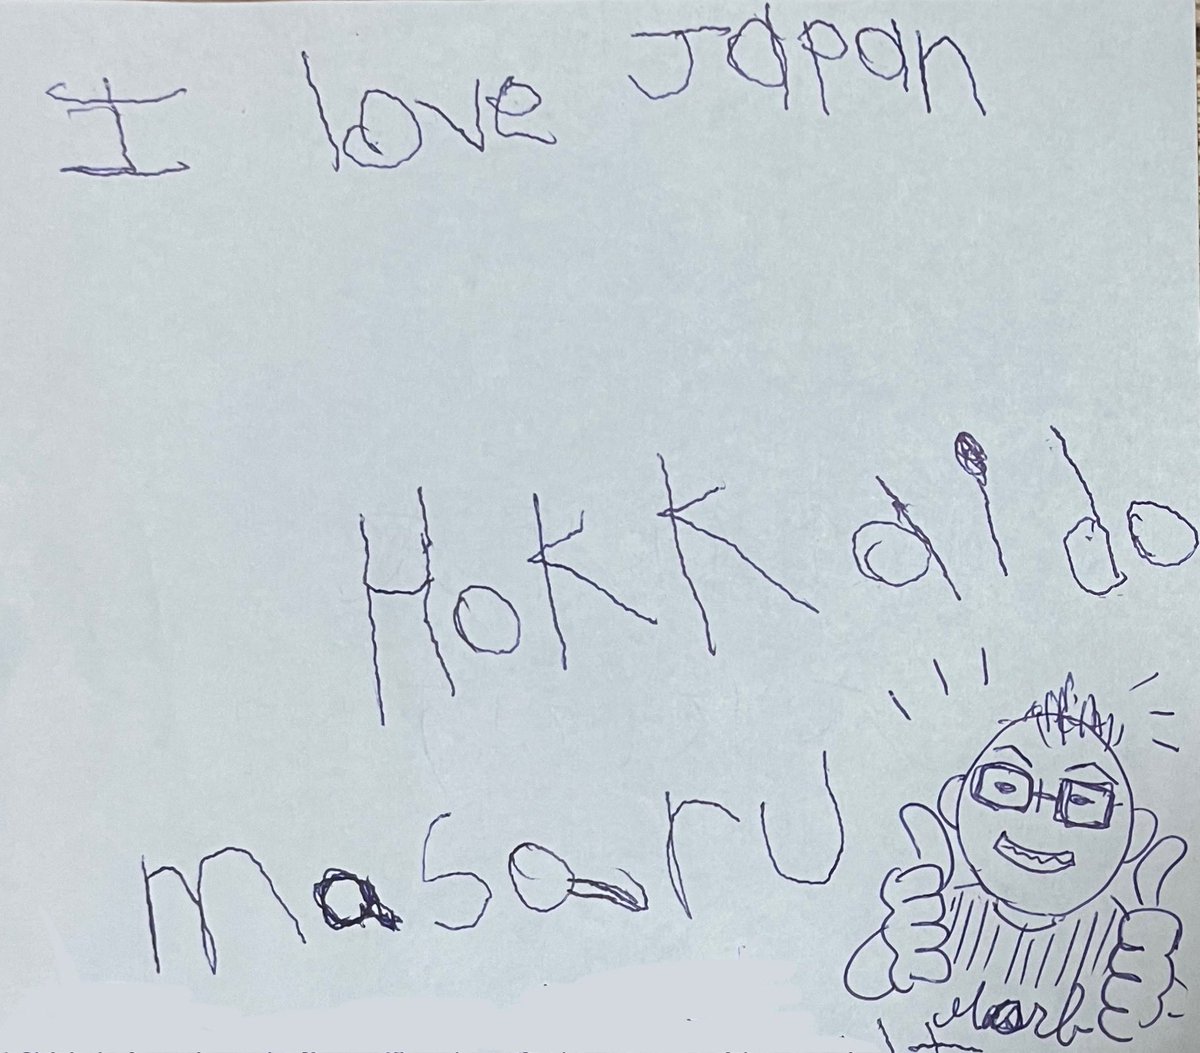 I love Japan
Hokkaido
masaru